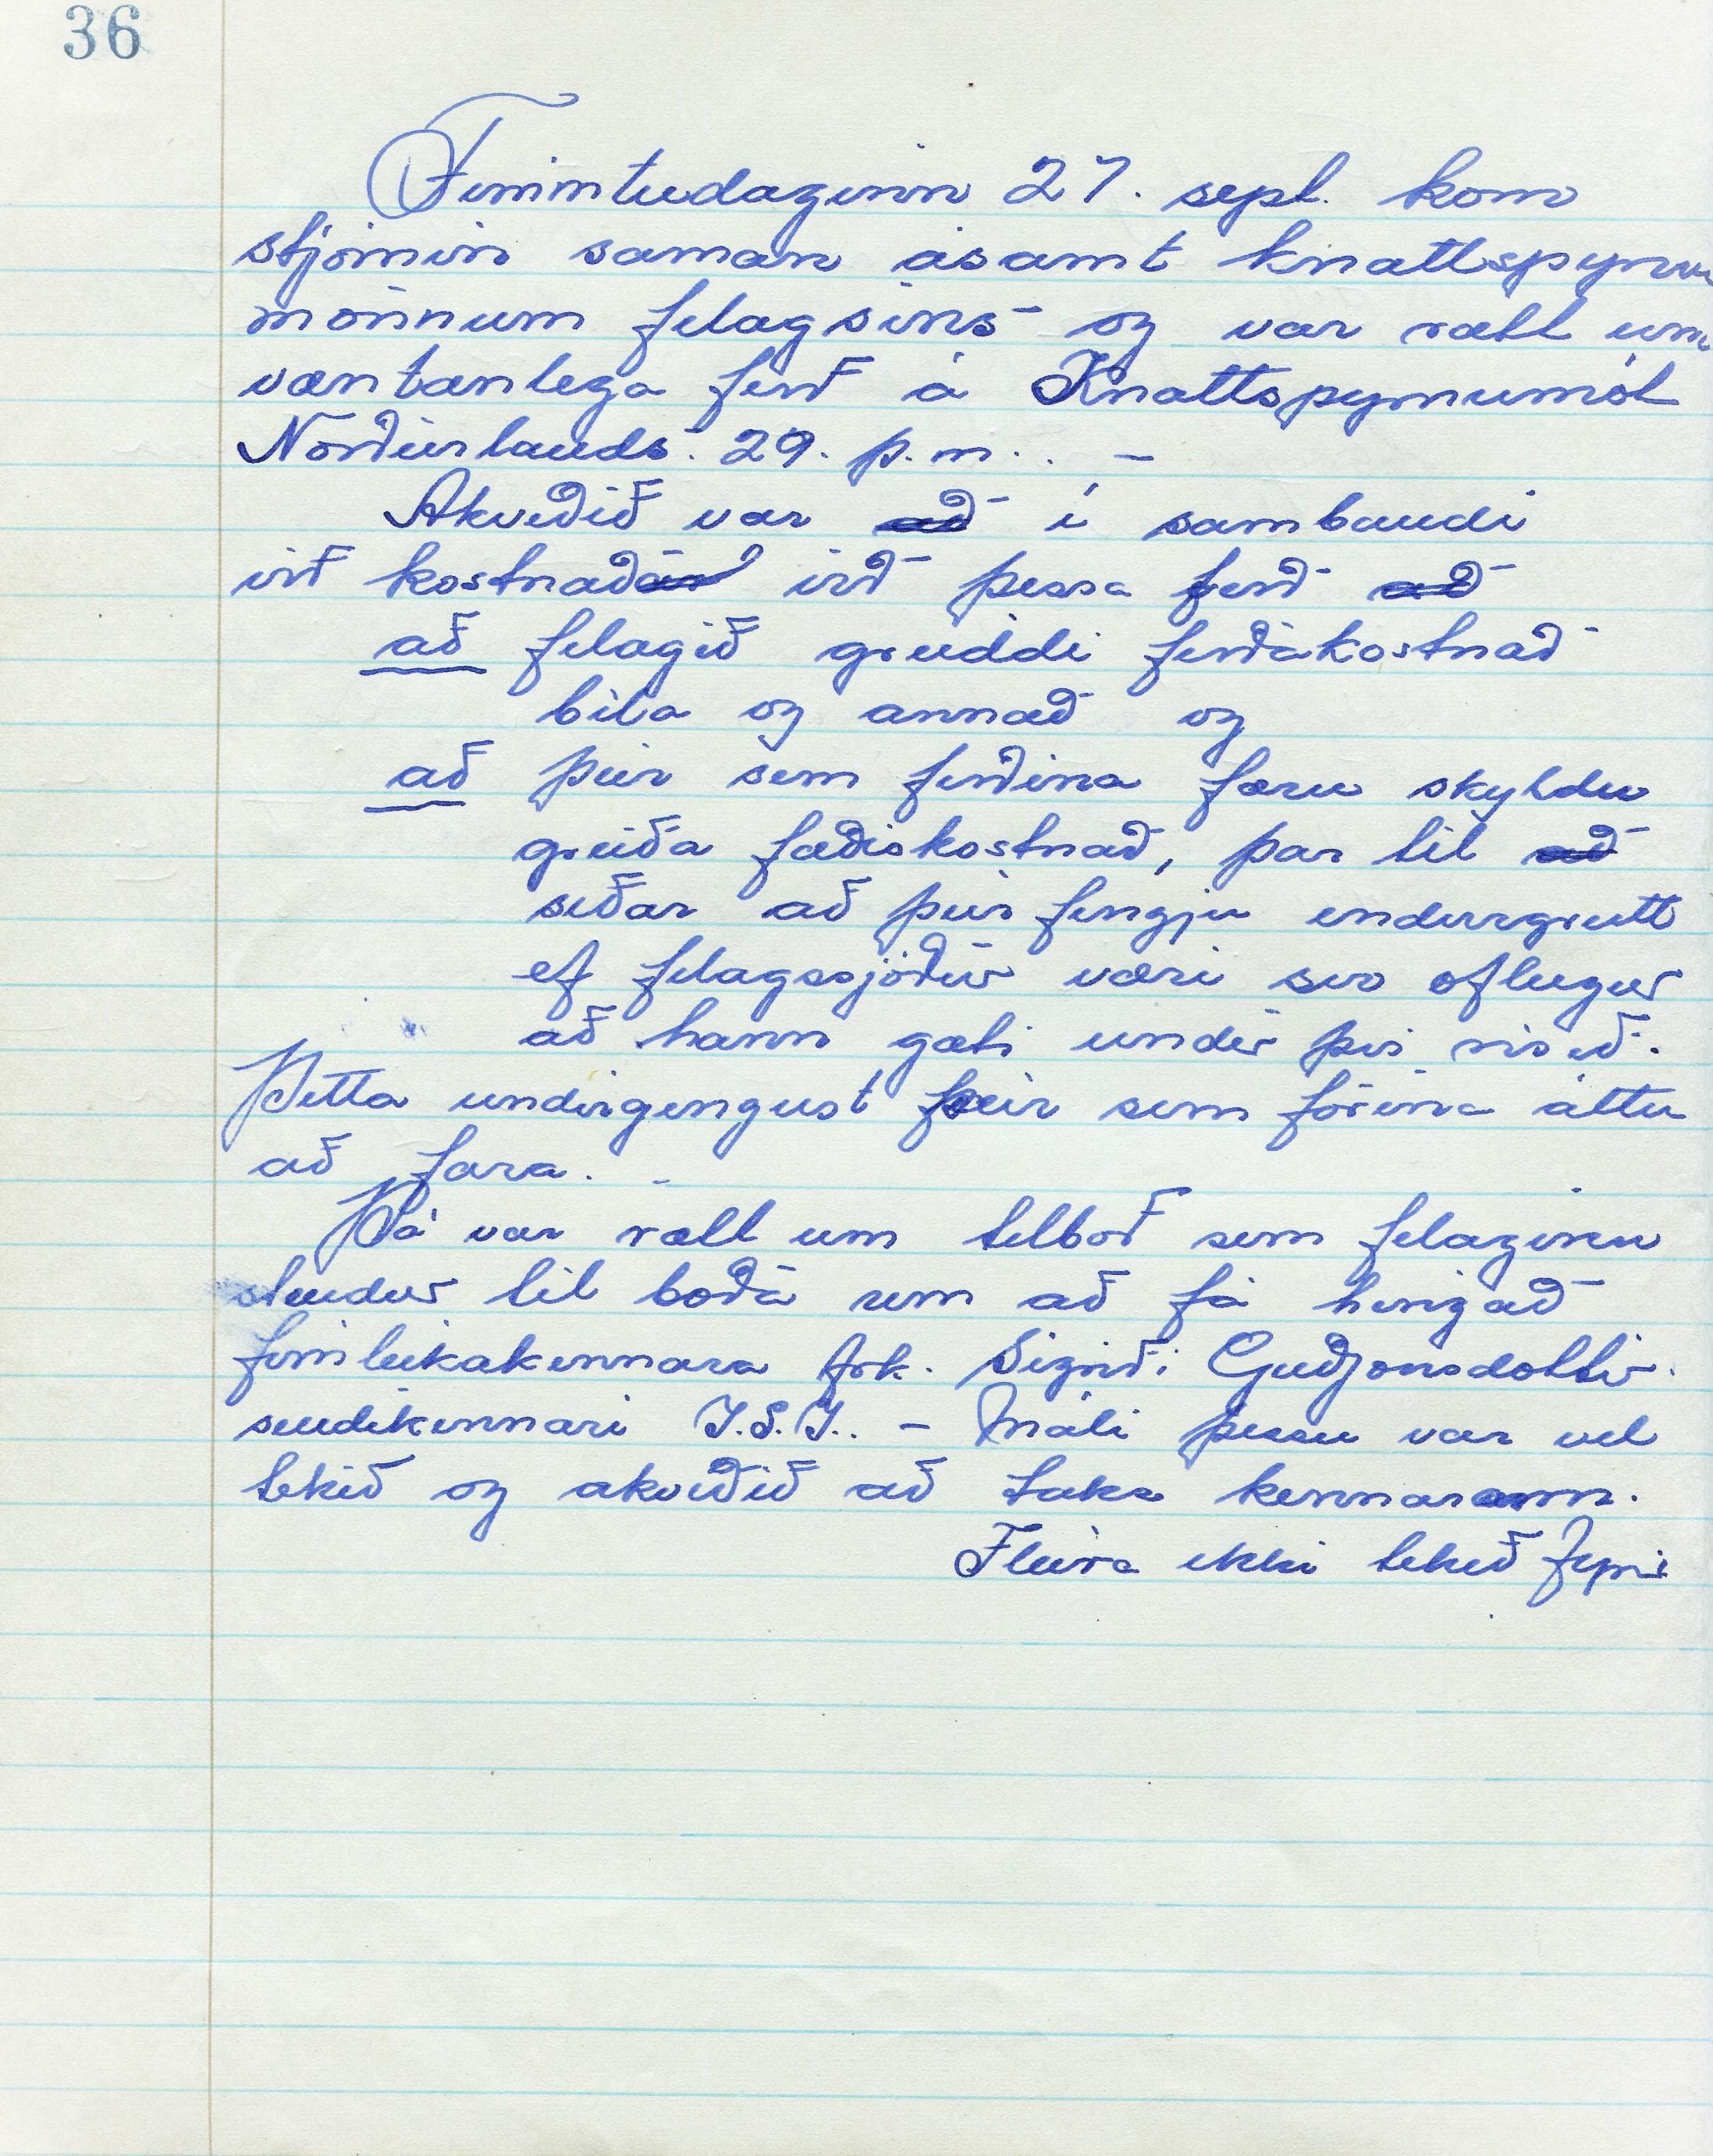 36
Fimmtudaginn 27. sept. kom
stjórnin saman ásamt knattspyrnu
mönnum félagsins og var rætt um
væntanlega ferð á Knattspyrnumót
Norðurlands. 29. þ.m.. –
Ákveðið var að í sambandi
við kostnaðar við þessa ferð að
að félagið greiddi ferðakostnað
bíla og annað og
að þeir sem ferðina færu skyldu
greiða fæðiskostnað, þar til að
síðar að þeir fengju endurgreitt
ef félagssjóður væri svo öflugur
að hann gæti undir því risið.
Þetta undirgengust þeir sem förina áttu
að fara. –
Þá var rætt um tilboð sem félaginu
stendur til boða um að fá hingað
fimleikakennara frk. Sigríði Guðjónsdóttir
sendikennari Í.S.Í.. – Máli þessu var vel
tekið og ákveðið að taka kennarann.
Fleira ekki tekið fyrir